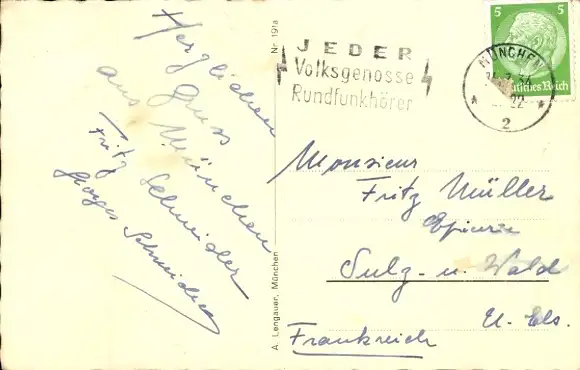 Herzlichen
Gruss
aus München
Fritz Schneider
Georges Schneider
Nr 191a
A. Lengauer, München
JEDER
Volksgenosse
Rundfunkhörer
MÜNCHEN
22
2
5 5
Deutsches Reich
Monsieur
Fritz Müller
Epicerie
Sulz- u. Wald
U. Els.
Frankreich